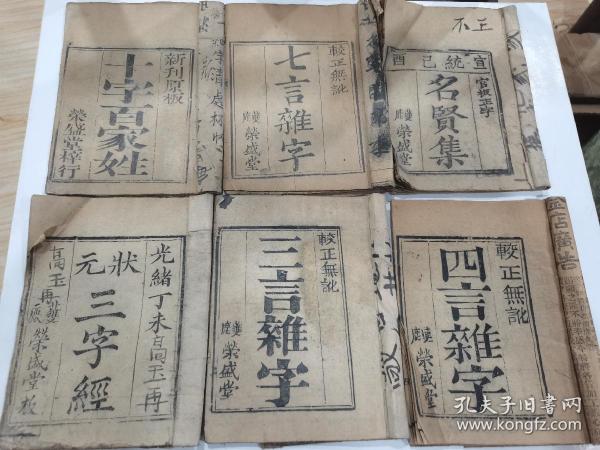 新刊原板
十字百家姓
榮盛堂梓行
較正無訛
七言雜字
榮盛堂
正
不
宣統己酉
官板正字
名賢集
榮盛堂
光緒丁未高玉再
狀元
三字經
榮盛堂板
較正無訛
三言雜字
榮盛堂
較正無訛
四言雜字
榮盛堂
孔夫子旧书网
www.kongfz.com